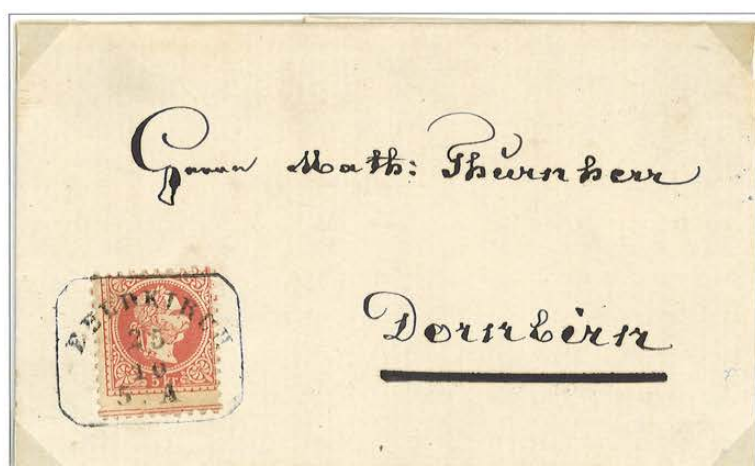 Herrn Math: Thurnherr
Dornbirn
FELDKIRCH
25
10
5. A
5